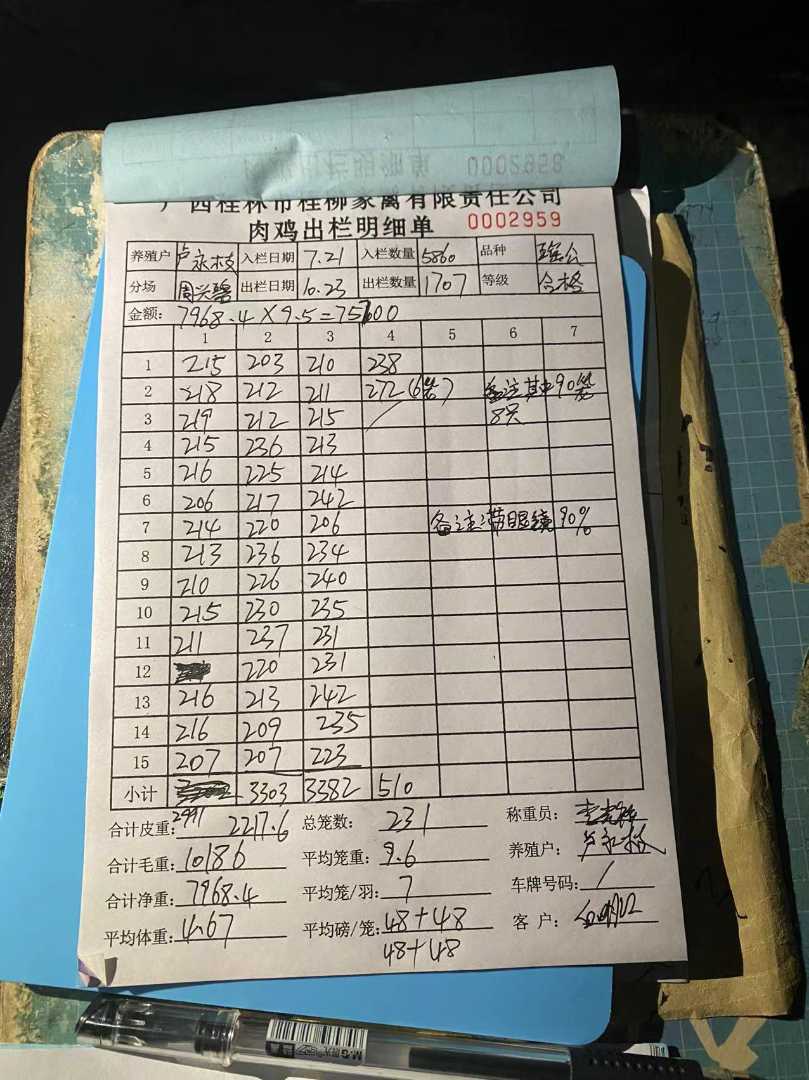 0002958
广西桂林市桂柳家禽有限责任公司
肉鸡出栏明细单 0002959
养殖户 卢永枝 入栏日期 7.21 入栏数量 5860 品种 瑶公
分场 周兴碧 出栏日期 10.23 出栏数量 1707 等级 合格
金额: 7968.4×9.5=75700
1 2 3 4 5 6 7
1 215 203 210 238
2 218 212 211 272(6笼) 备注其中90笼
3 219 212 215 8只
4 215 236 213
5 216 225 214
6 206 217 242
7 214 220 206 备注:带眼镜90%
8 213 236 234
9 210 226 240
10 215 230 235
11 211 237 231
12 220 231
13 216 213 242
14 216 209 235
15 207 207 223
小计 3303 3382 510
2991
合计皮重: 2217.6 总笼数: 231 称重员:
合计毛重: 10186 平均笼重: 9.6 养殖户: 卢永枝
合计净重: 7968.4 平均笼/羽: 7 车牌号码: /
平均体重: 4.67 平均磅/笼: 48+48 客户:
48+48
M&G